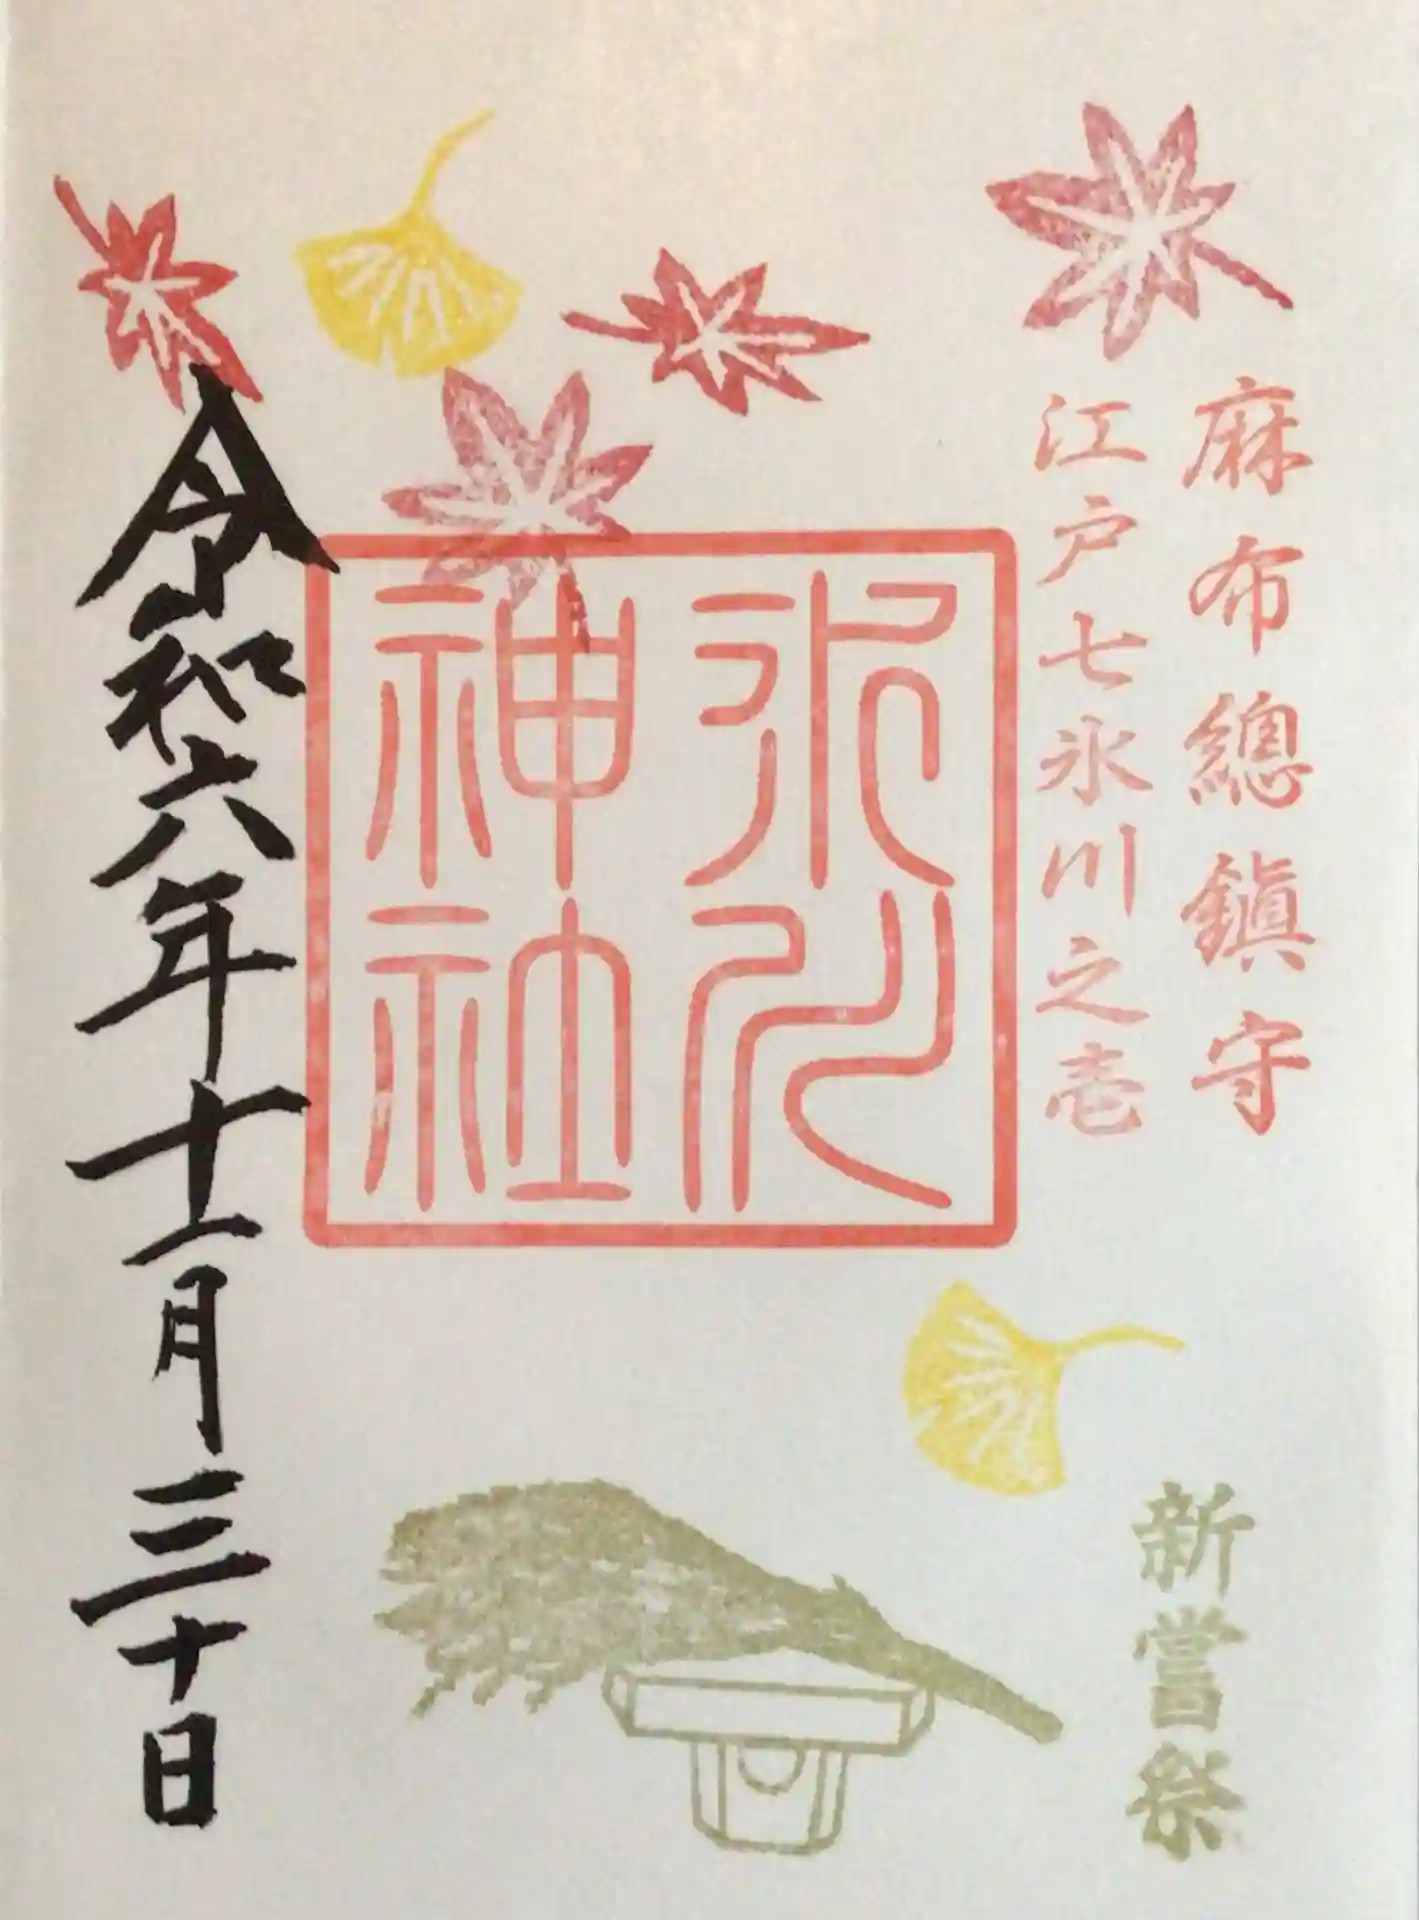 麻布總鎭守
江戸七氷川之壱
氷川
神社
新嘗祭
令和六年十一月三十日